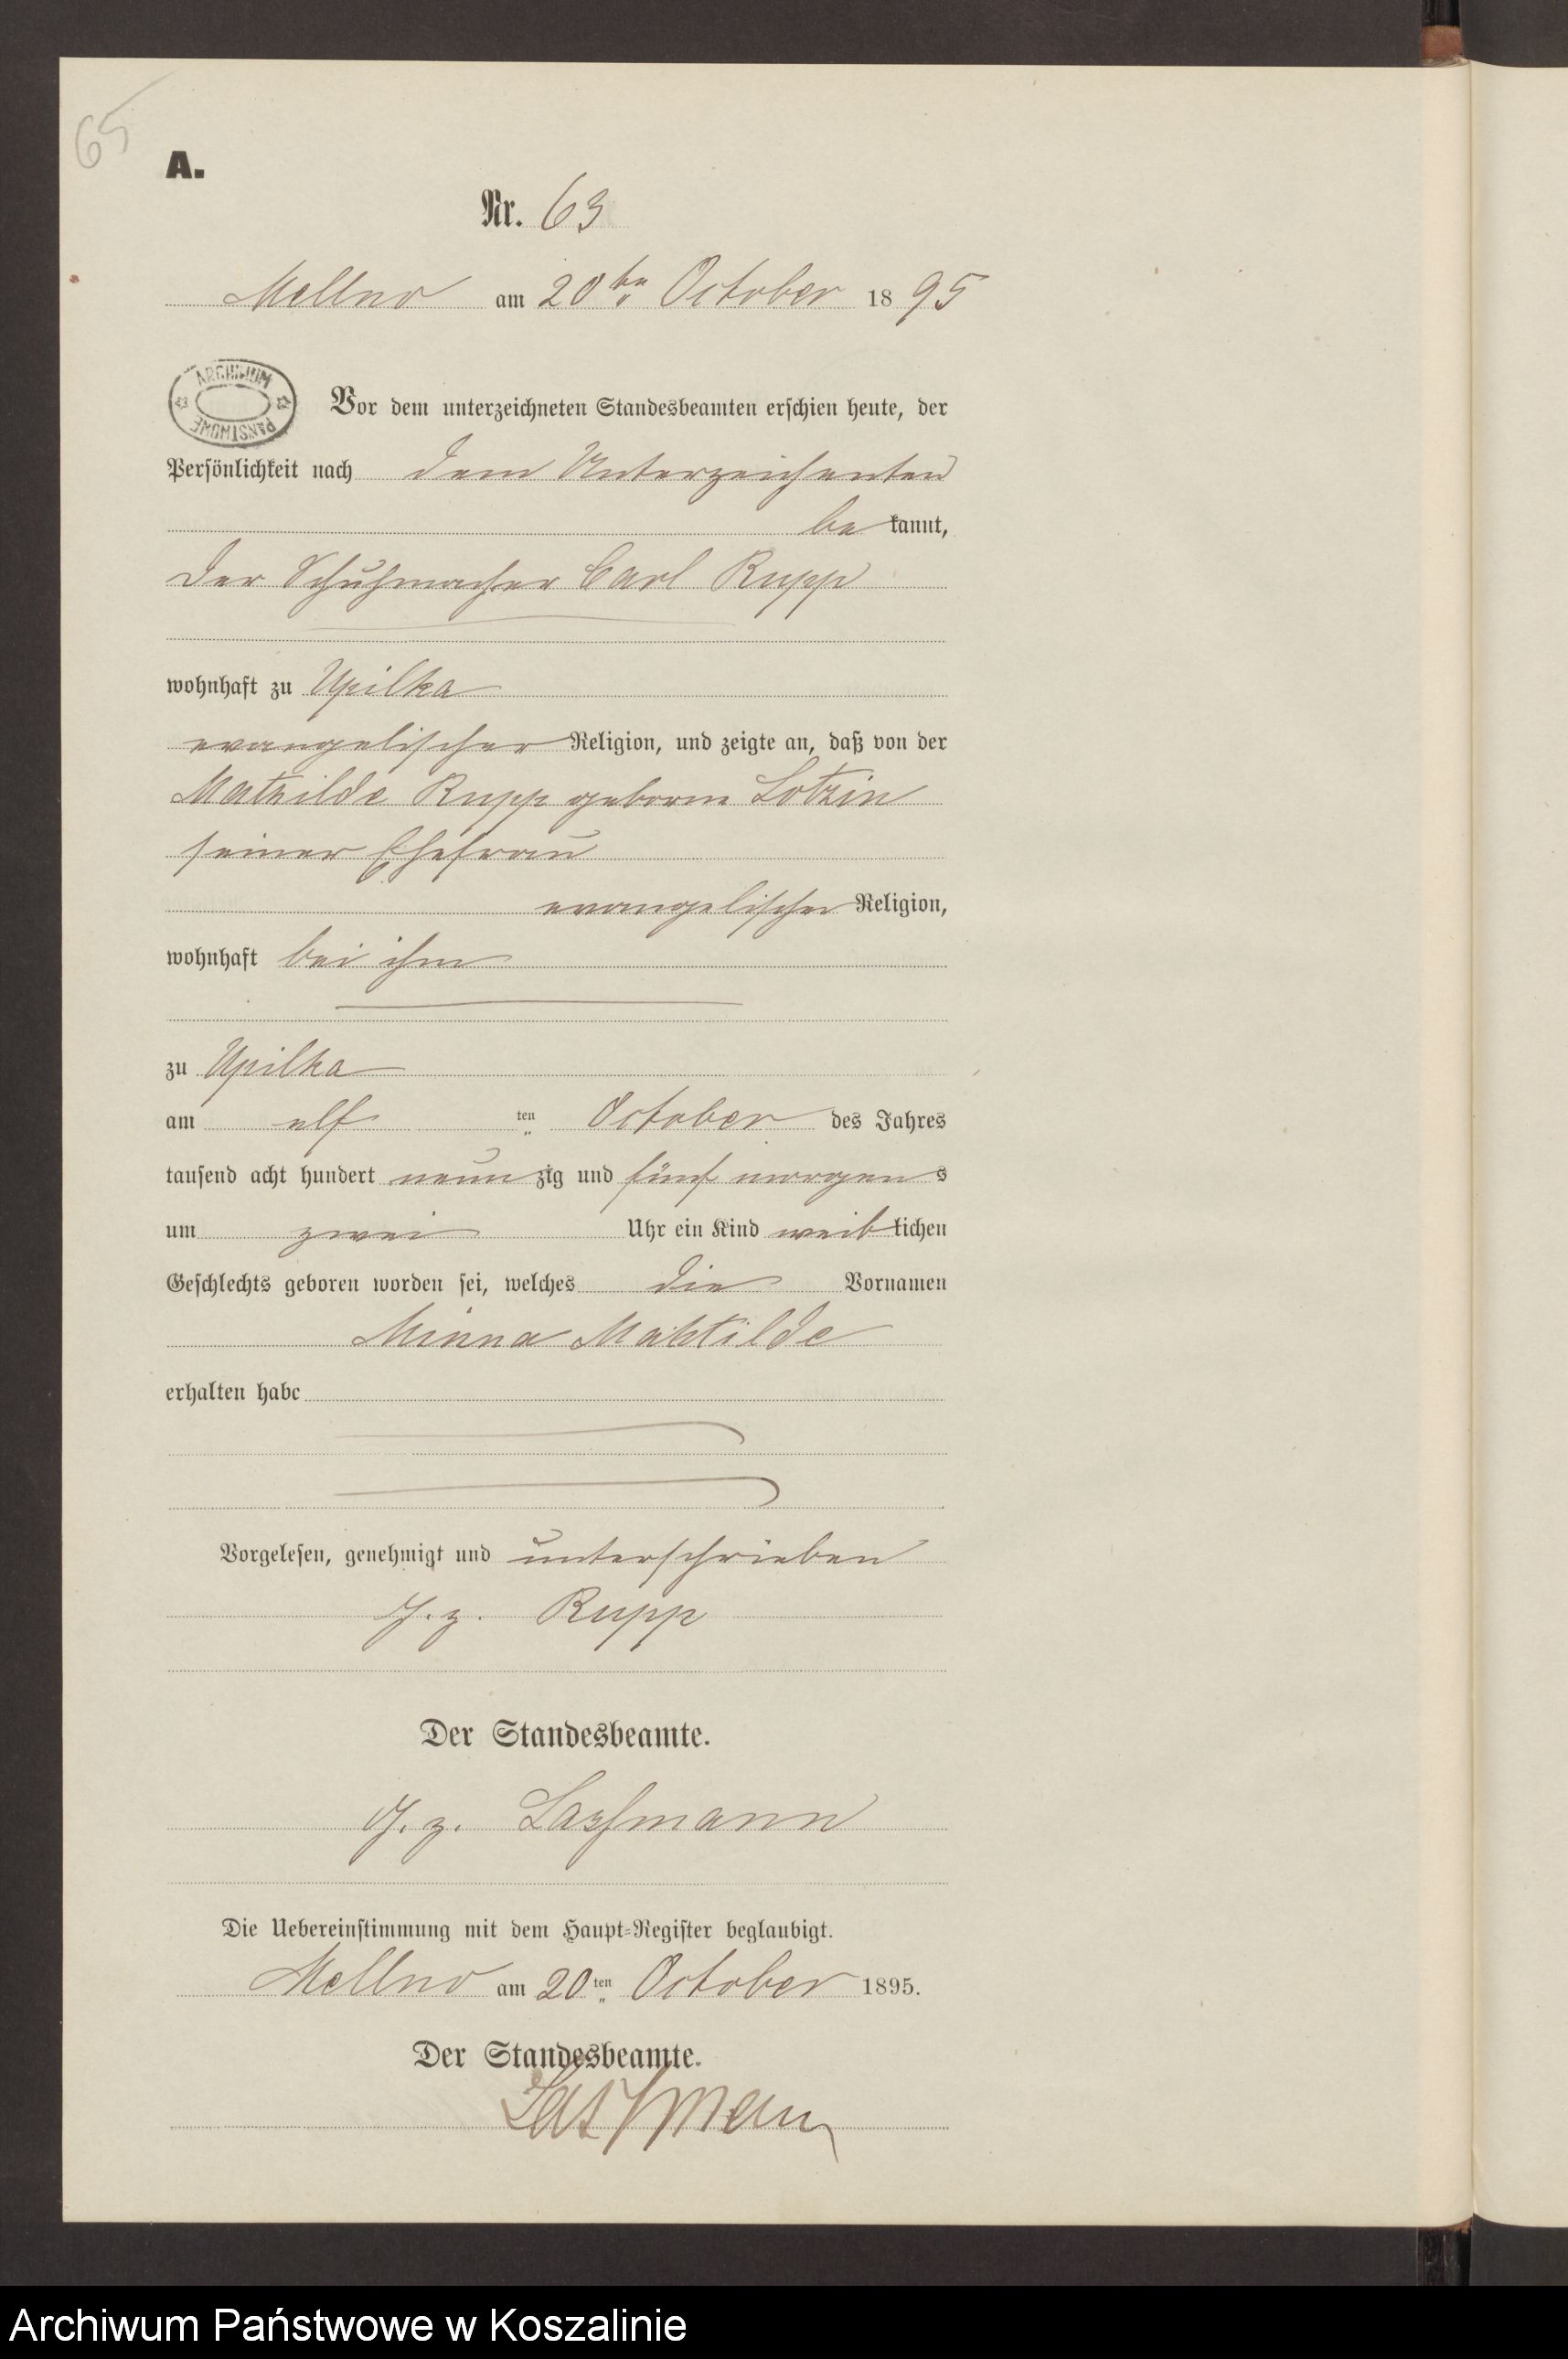 65
A.
Nr. 63
Mellno am 20ten October 1895
ARCHIWUM
PAŃSTWOWE
Vor dem unterzeichneten Standesbeamten erschien heute, der
Persönlichkeit nach dem Unterzeichenten
bekannt,
der Schuhmacher Carl Rupp
wohnhaft zu Upilka
evangelischer Religion, und zeigte an, daß von der
Mathilde Rupp geborne Lotzin
seiner Ehefrau
evangelischer Religion,
wohnhaft bei ihm
zu Upilka
am elf ten October des Jahres
tausend acht hundert neunzig und fünf morgens
um zwei Uhr ein Kind weiblichen
Geschlechts geboren worden sei, welches die Vornamen
Minna Mahtilde
erhalten habe
Vorgelesen, genehmigt und unterschrieben
g. z. Rupp
Der Standesbeamte.
g. z.
Die Uebereinstimmung mit dem Haupt-Register beglaubigt.
Mellno am 20ten October 1895.
Der Standesbeamte.
Archiwum Państwowe w Koszalinie